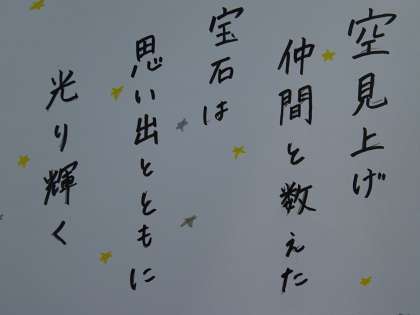 空見上げ
仲間と数えた
宝石は
思い出とともに
光り輝く